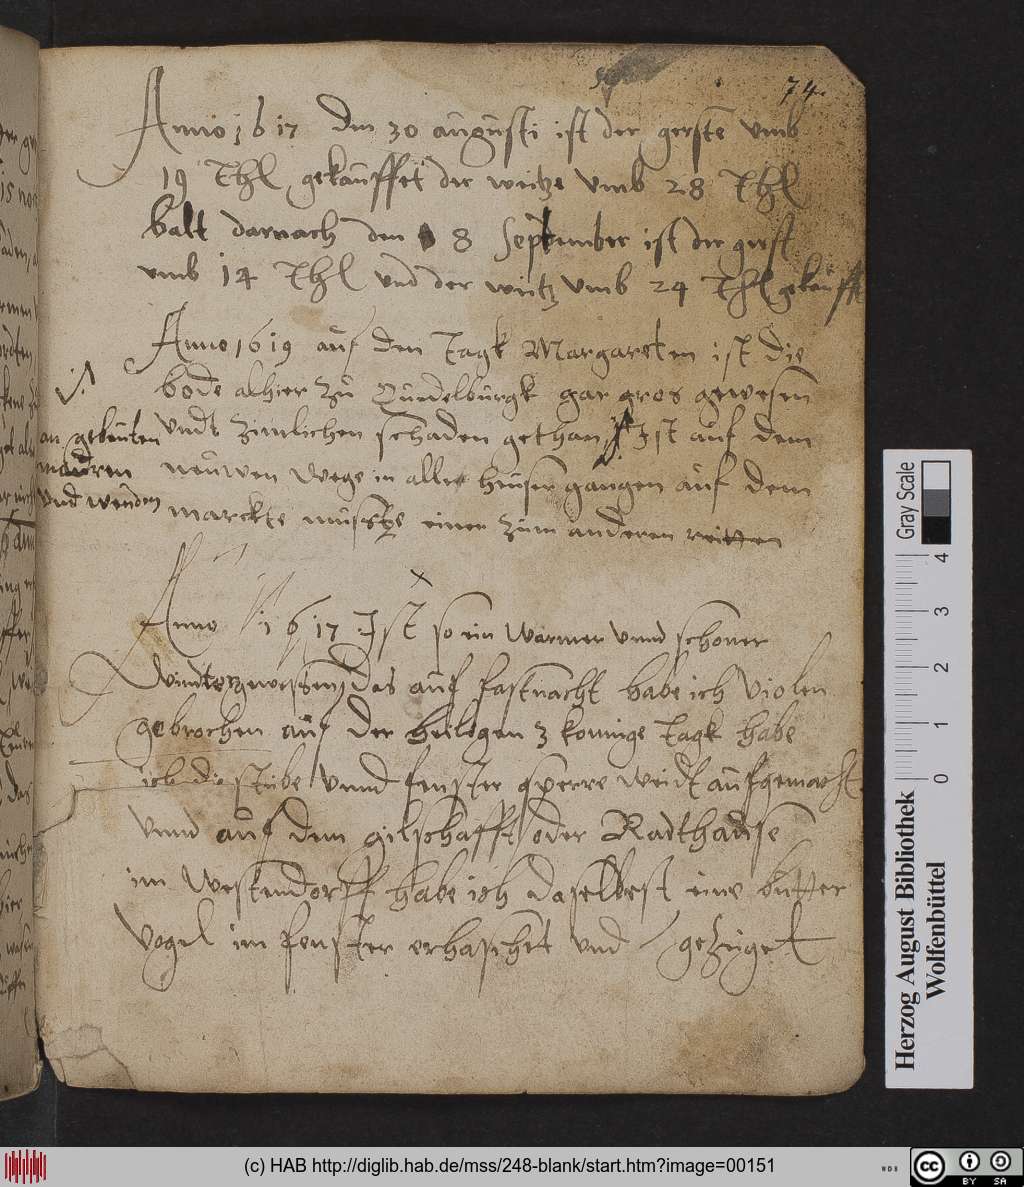 74.
Anno 1617 den 30 augusti ist der gerste umb
19 Thl gekauffet der weitze umb 28 Thl
balt darnach den 8 September ist der gerst
umb 14 Thl und der weitz umb 24 Thl gekaufft
Anno 1619 auf den Tagk Margareten ist die
bode alhier zu Quedelburgk gar gros gewesen
undt zimlichen schaden gethan Ist auf dem
an gebeuten
mauren
und wenden
neuwen wege in alle heuser gangen auf dem
marckte muste einer zum anderen reitten
Anno 1617 Ist so ein warmer unnd schoner
winter gewessen das auf fastnacht habe ich violen
gebrochen auf der heiligen 3 konnige Tagk habe
ich die stube unnd fenster sperre weidt aufgemacht
unnd auf dem gilschafft oder Radthause
im Westendorff habe ich daselbest eine butter
vogel im fenster erhaschet und gezuget
Herzog August Bibliothek
Wolfenbüttel
0 1 2 3 4
Gray Scale
(c) HAB http://diglib.hab.de/mss/248-blank/start.htm?image=00151
WDB
cc BY SA